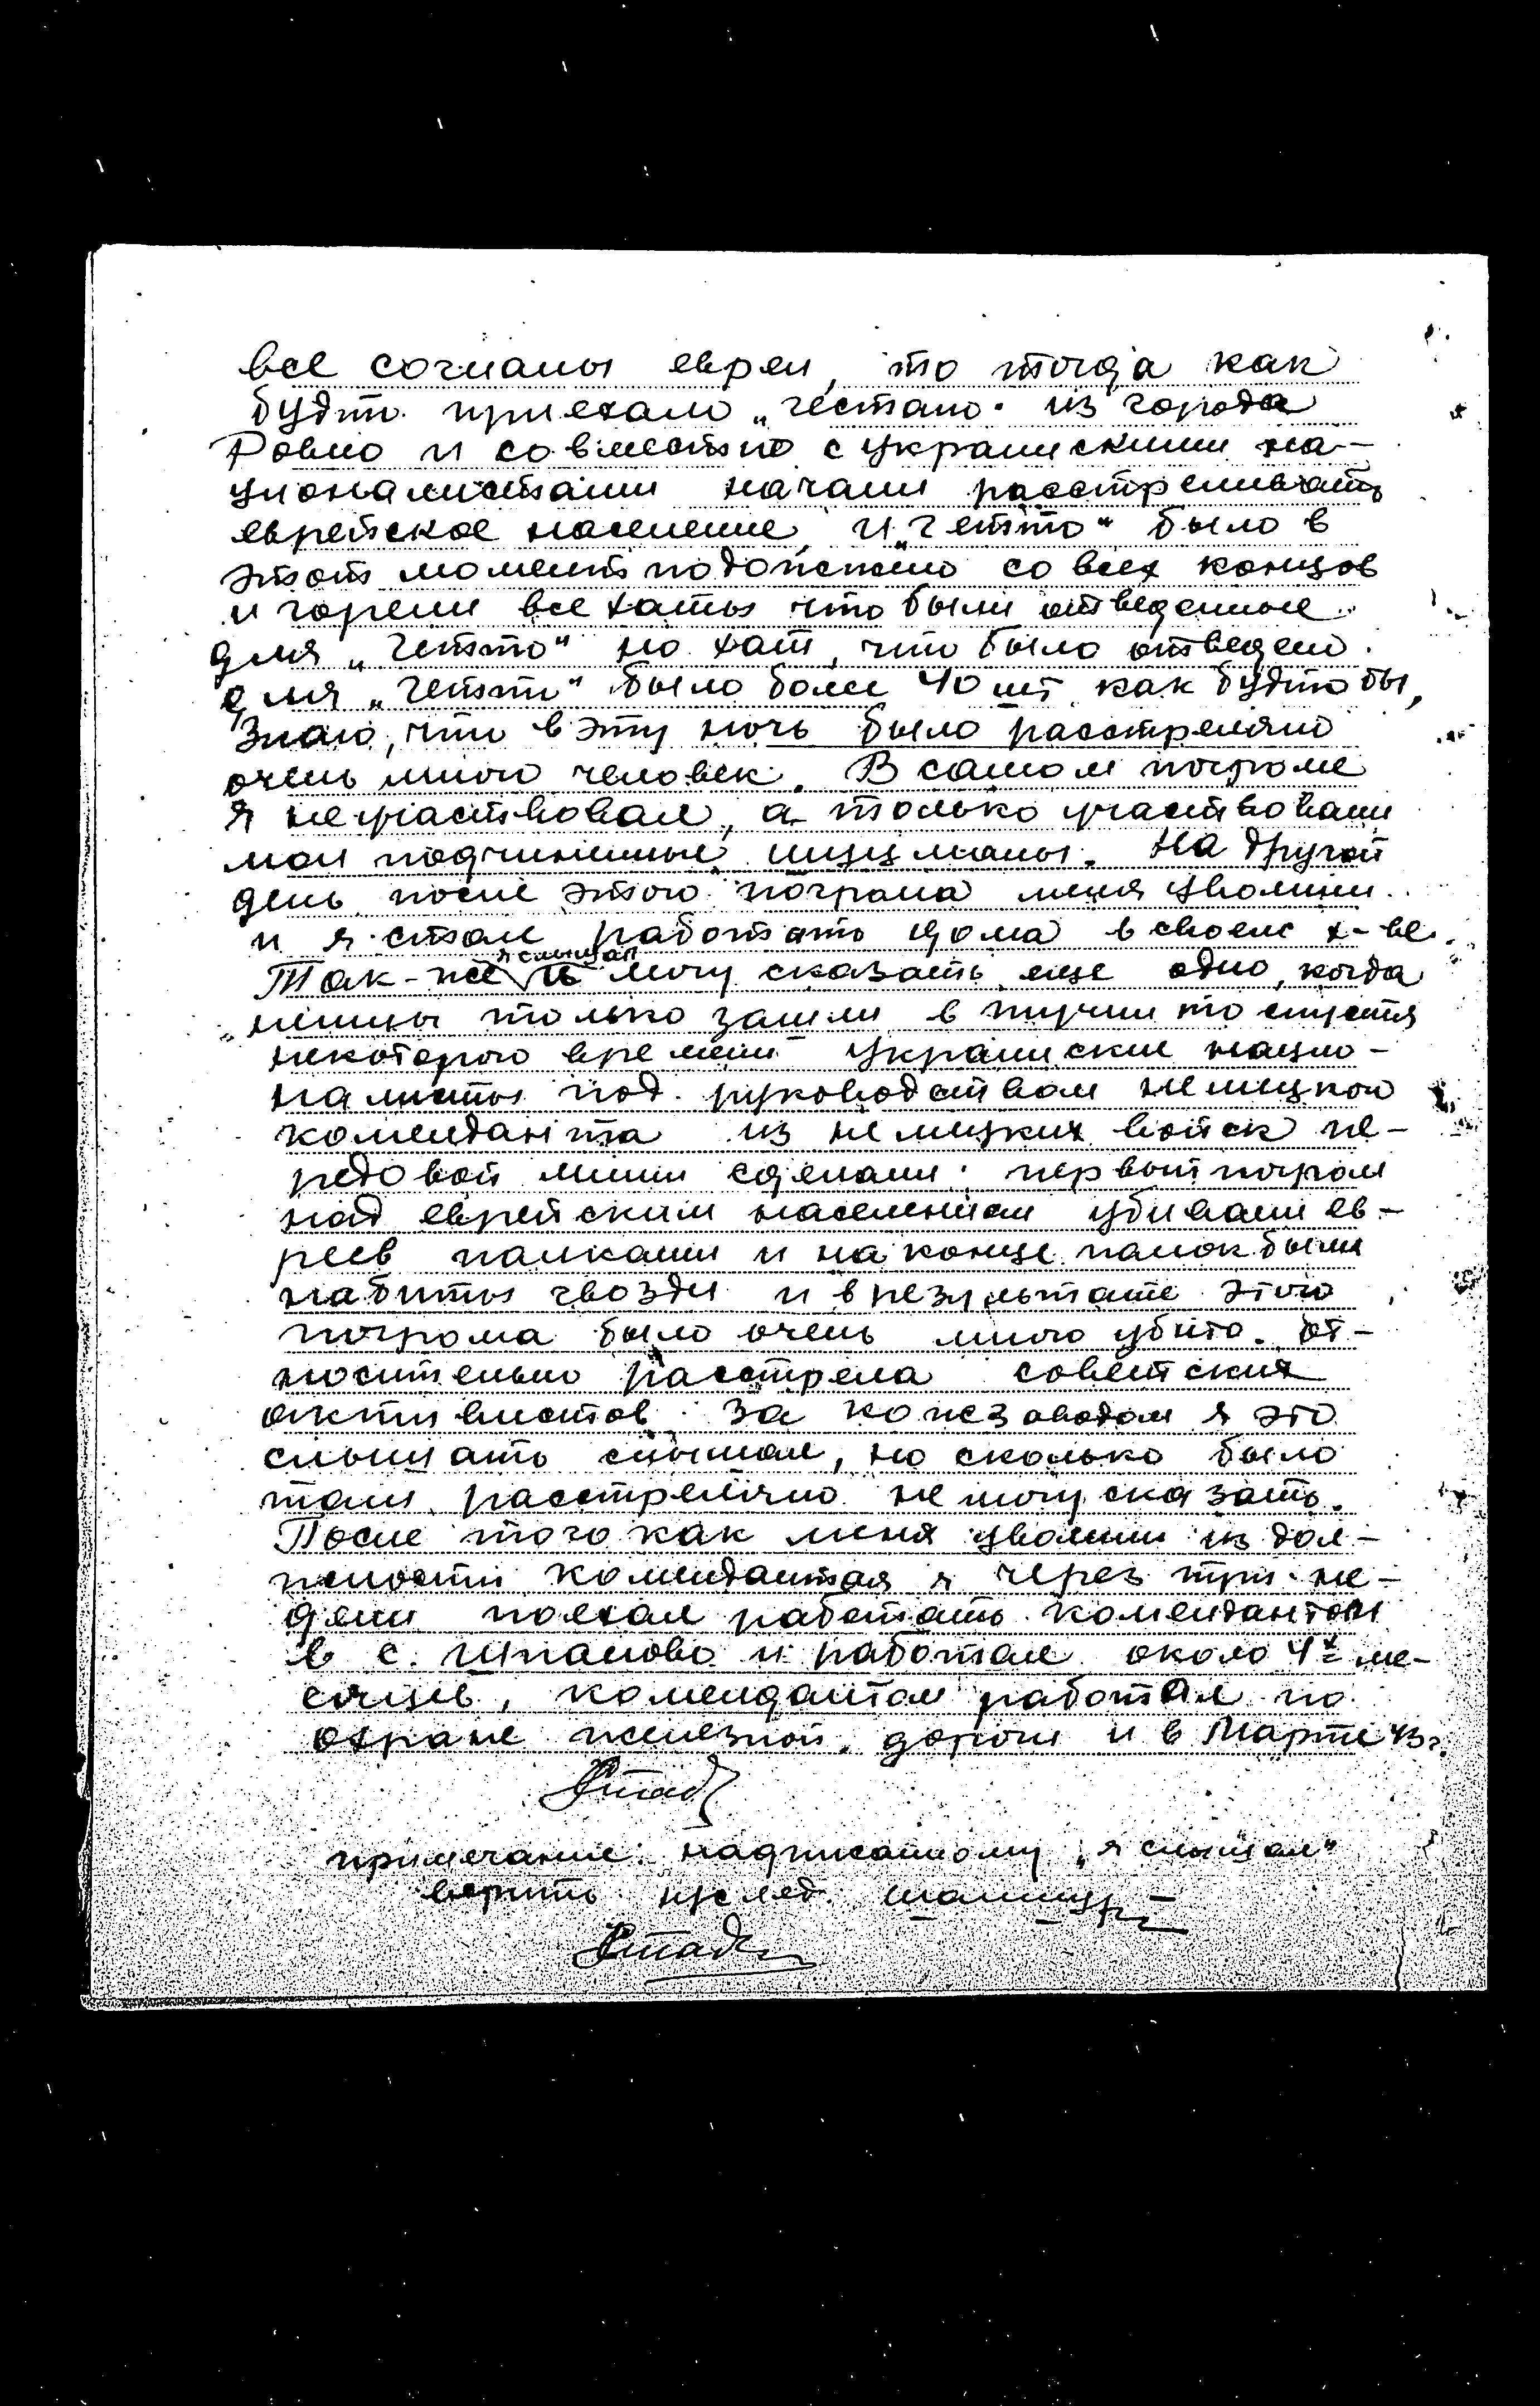 все согнаны евреи, то тогда как
будто приехало „гестапо" из города
Ровно и совместно с украинскими на-
ционалистами начали расстреливать
еврейское население, и „гетто" было в
этот момент подожжено со всех концов
и горели все хаты что были отведенные
для „гетто" но хат, что было отведено
для „гетто" было более 40 шт как будто бы,
знаю, что в эту ночь было расстреляно
очень много человек. В самом погроме
я не участвовал, а только участвовали
мои подчиненные шуцманы. На другой
день после этого погрома меня уволили
и я стал работать дома в своем х-ве.
я слышал
Так-же и могу сказать еще одно, когда
немцы только зашли в то спустя
некоторого времени украинские нацио-
налисты под руководством немецкого
коменданта из немецких войск пе-
редовой линии сделали первый погром
над еврейским населением убивали ев-
реев палками и на конце палок были
набиты гвозди и в результате этого
погрома было очень много убито. От-
носительно расстрела советских
активистов за кожзаводом я это
слышать слышал, но сколько было
там расстреляно не могу сказать.
После того как меня уволили из дол-
жности коменданта я через три не-
дели поехал работать комендантом
в с. Шпаново и работал около 4х ме-
сяцев, комендантом работал по
охране железной дороги и в Марте 43 г.
примечание: надписанному „я слышал"
верить след.